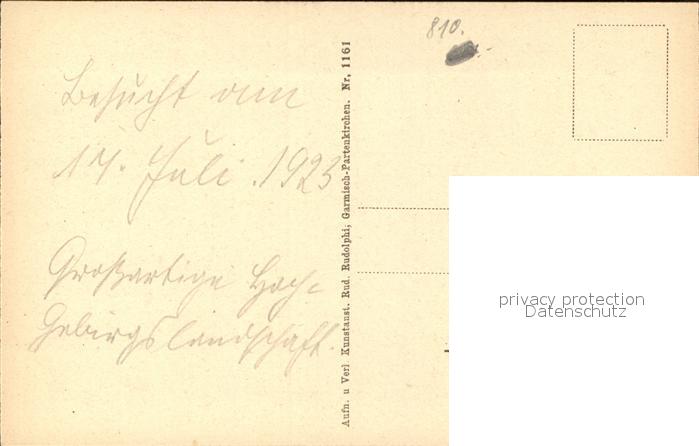 Besucht am
17. Juli 1923
Großartige Hoch-
Gebirgslandschaft.
Aufn. u Verl Kunstanst. Rud. Rudolphi, Garmisch-Partenkirchen. Nr, 1161
810.
privacy protection
Datenschutz